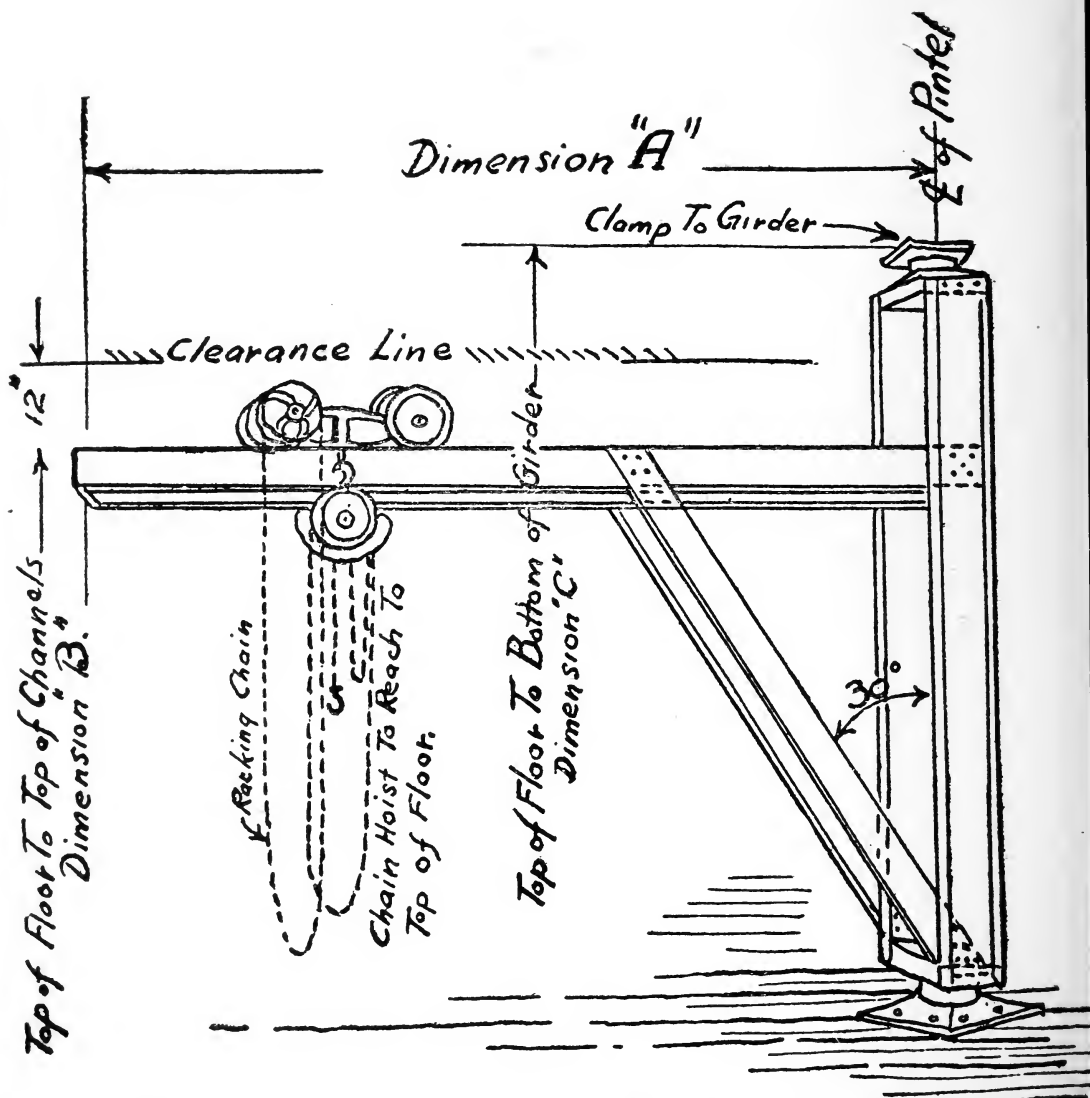 Dimension "A"
℄ of Pintel
Clamp To Girder
12"
Clearance Line
Top of Floor To Top of Channels
Dimension "B."
Racking Chain
Chain Hoist To Reach To
Top of Floor.
Top of Floor To Bottom of Girder
Dimension "C"
30°